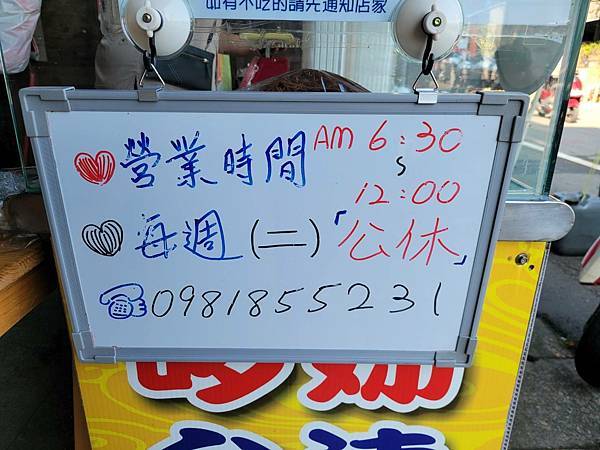 如有不吃的請先通知店家
營業時間 AM 6:30
s
12:00
每週(二)「公休」
☎0981855231